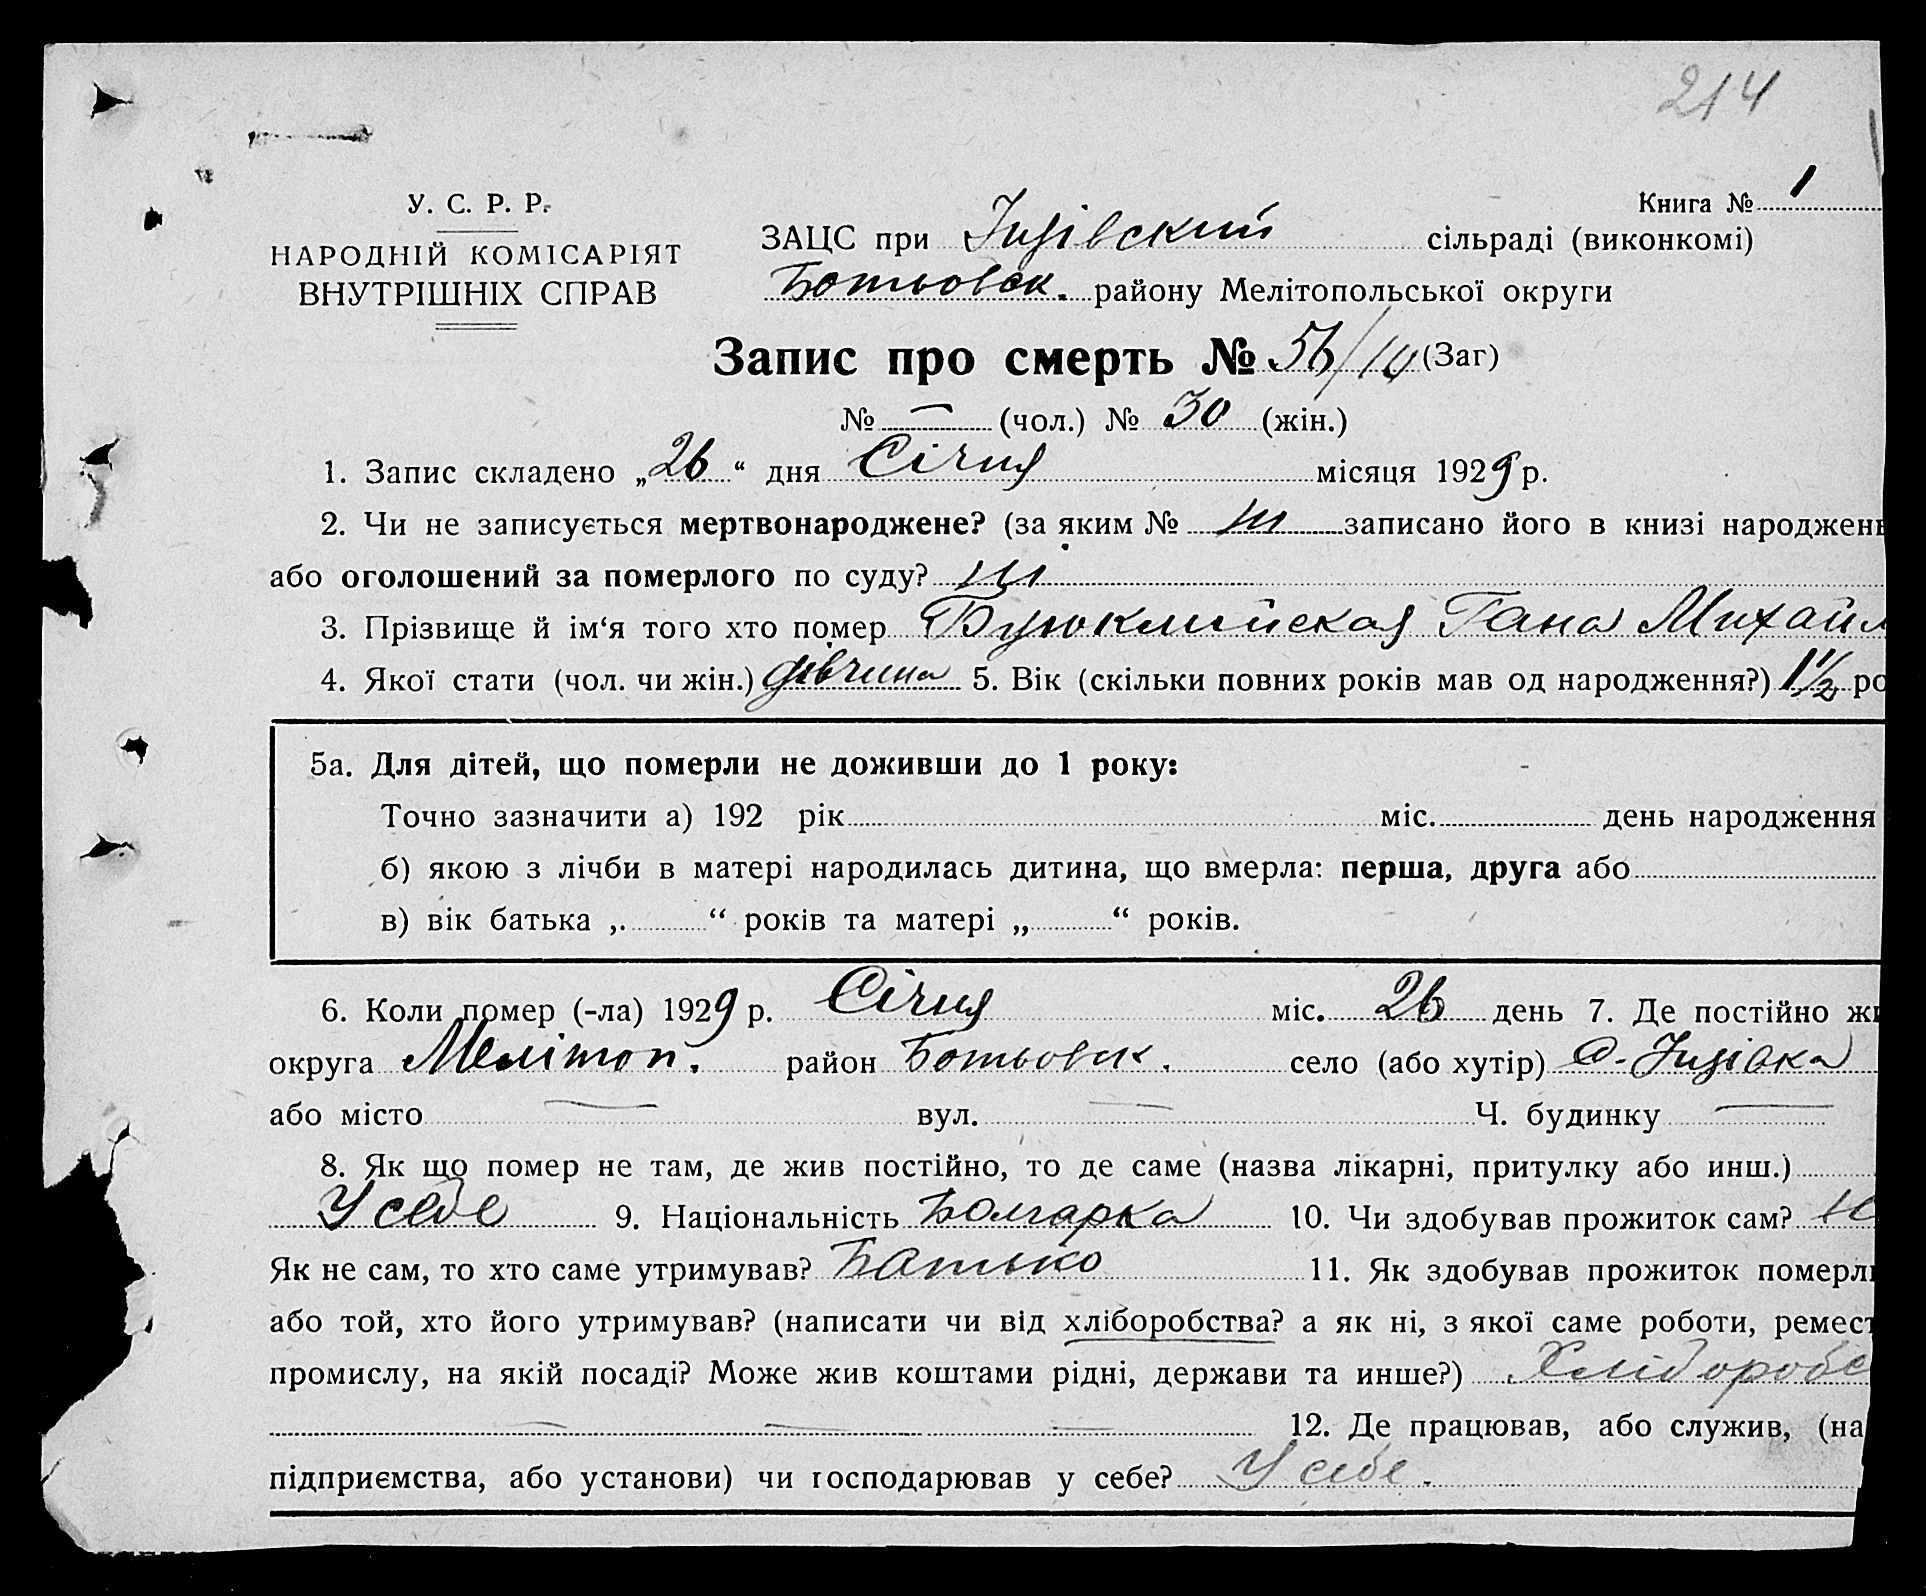 214
Книга № 1
У. С. Р. Р.
НАРОДНІЙ КОМІСАРІЯТ
ВНУТРІШНІХ СПРАВ
ЗАЦС при Інзівский сільраді (виконкомі)
Ботьовск. району Мелітопольської округи
Запис про смерть № 56/ (Заг)
№ — (чол.) № 30 (жін.)
1. Запис складено „26“ дня Січня місяця 1929 р.
2. Чи не записується мертвонароджене? (за яким № ні записано його в книзі народжен
або оголошений за померлого по суду? ні
3. Прізвище й ім‘я того хто помер Буюклийская Гана Михайл
4. Якої стати (чол. чи жін.) дівчина 5. Вік (скільки повних років мав од народження?) 1 1/2 ро
5а. Для дітей, що померли не доживши до 1 року:
Точно зазначити а) 192 рік міс. день народження
б) якою з лічби в матері народилась дитина, що вмерла: перша, друга або
в) вік батька „ “ років та матері „ “ років.
6. Коли помер (-ла) 1929 р. Січня міс. 26 день 7. Де постійно жи
округа Мелітоп. район Ботьовск. село (або хутір) с. Інзівка
або місто — вул. — Ч. будинку —
8. Як що помер не там, де жив постійно, то де саме (назва лікарні, притулку або инш.)
У себе 9. Національність Болгарка 10. Чи здобував прожиток сам? н
Як не сам, то хто саме утримував? Батько 11. Як здобував прожиток померли
або той, хто його утримував? (написати чи від хліборобства? а як ні, з якої саме роботи, ремест
промислу, на якій посаді? Може жив коштами рідні, держави та инше?) Хлібороб
— — — 12. Де працював, або служив, (на
підприємства, або установи) чи господарював у себе? У себе.